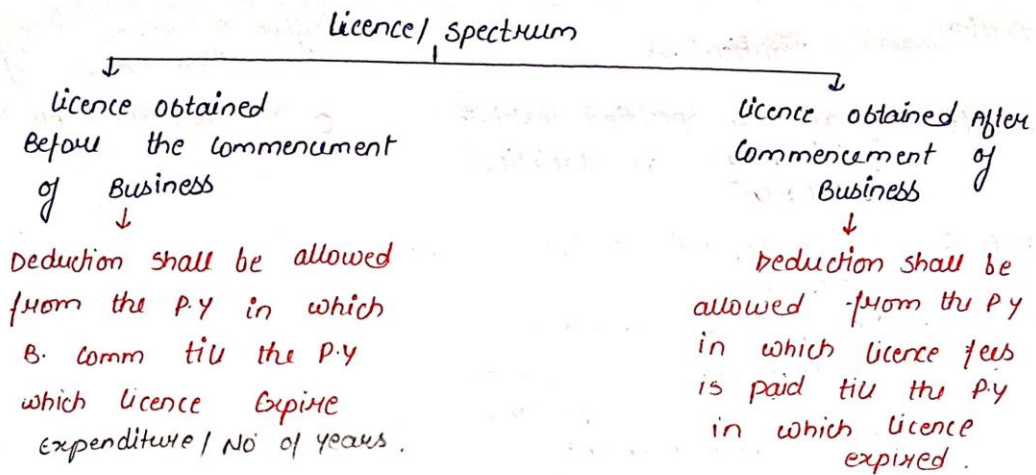 Licence/ Spectrum
Licence obtained
Before the commencement
of Business
Deduction shall be allowed
from the P.Y in which
B. comm till the P.Y
which licence Expire
Expenditure/ No of years.
Licence obtained After
Commencement of
Business
Deduction shall be
allowed from the P Y
in which licence fees
is paid till the P.Y
in which licence
expired.